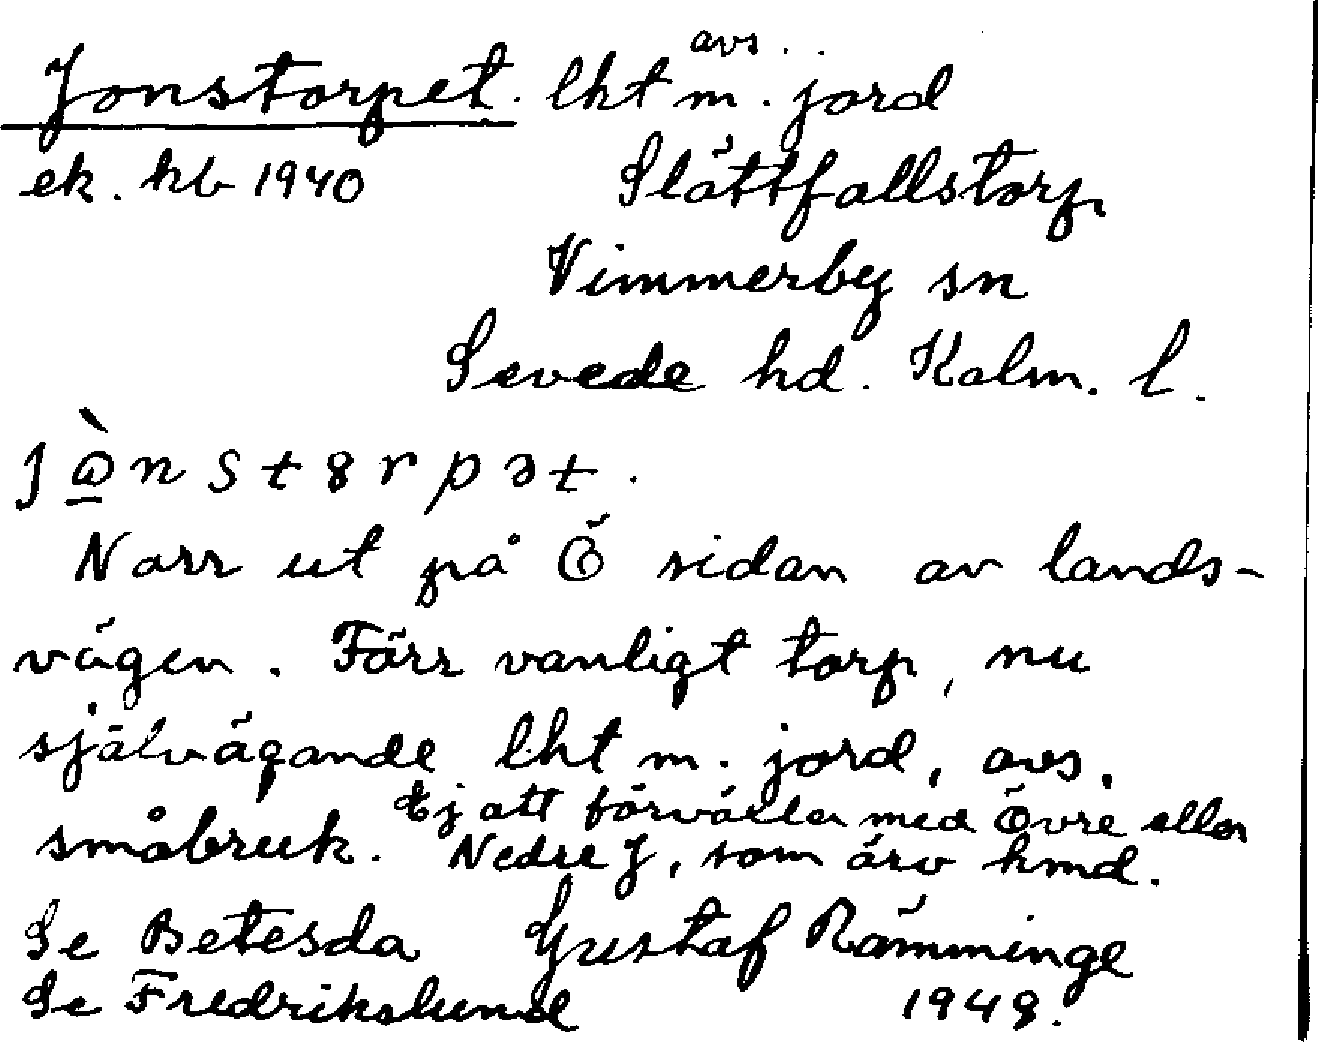 Jonstorpet. lht m. avs. jord
ek. kb 1940 Slättfallstorp
Vimmerby sn
Sevede hd. Kalm. l.
Norr ut på Ö sidan av lands-
vägen. Förr vanligt torp, nu
självägande lht m. jord, avs.
småbruk. Ej att förväxla med Övre eller
Nedre J, som är hmd.
Se Betesda Gustaf Rämminge
Se Fredrikslund 1948.